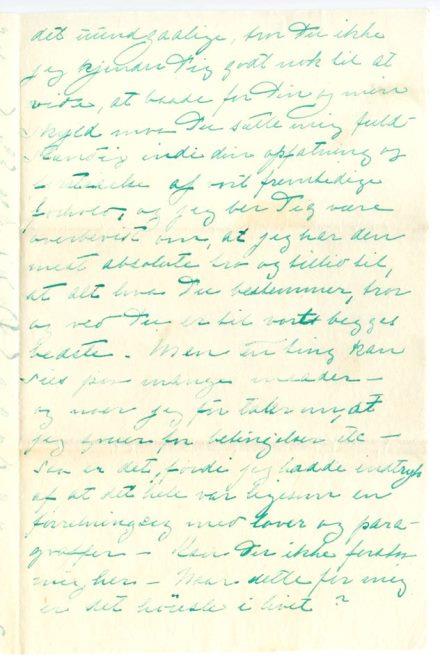 det uundgaalige, tror Du ikke
jeg kjender Dig godt nok til at
vide, at baade for Din og min
skyld maa Du sætte mig fuld-
stændig ind i din opfatning og
af vort fremtidige
forhold, og jeg ber Dig være
overbevist om, at jeg har den
mest absolute tro og tillid til,
at alt hva Du bestemmer, tror
og ved Du er til vort begges
bedste. Men en ting kan
sies paa mange maader –
og naar jeg før taler om at
jeg gruer for betingelser etc –
saa er det, fordi jeg hadde indtryk
af at det hele var ligesom en
forretningssag med lover og para-
graffer – Kan Du ikke forstaa
mig her – Naar dette for mig
er det höieste i livet?